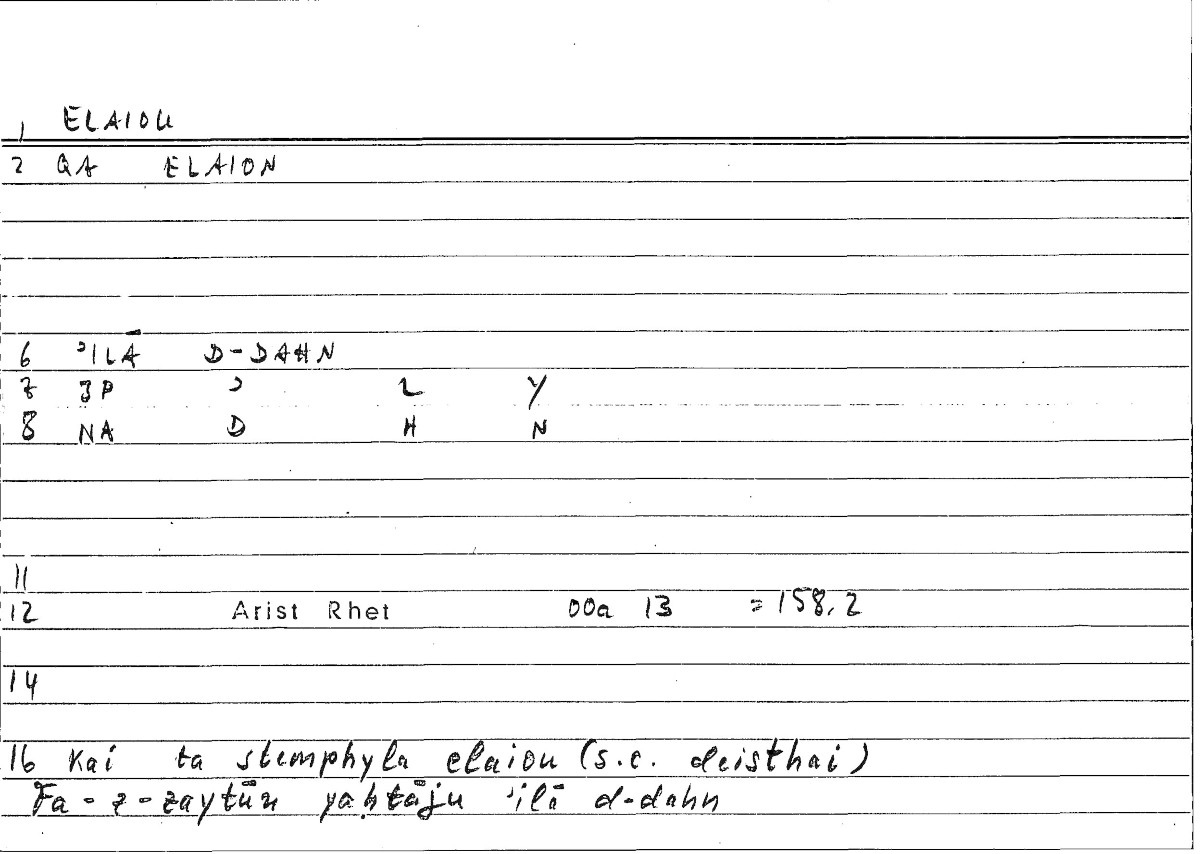 1 ELAIOU
2 QA ELAION
6 ʾILĀ D-DAHN
7 3P ʾ L Y
8 NA D H N
11
12 Arist Rhet 00a 13 = 158,2
14
16 Kai ta stemphyla elaiou (s.c. deisthai)
Fa-z-zaytūn yaḥtāju ʾilā d-dahn